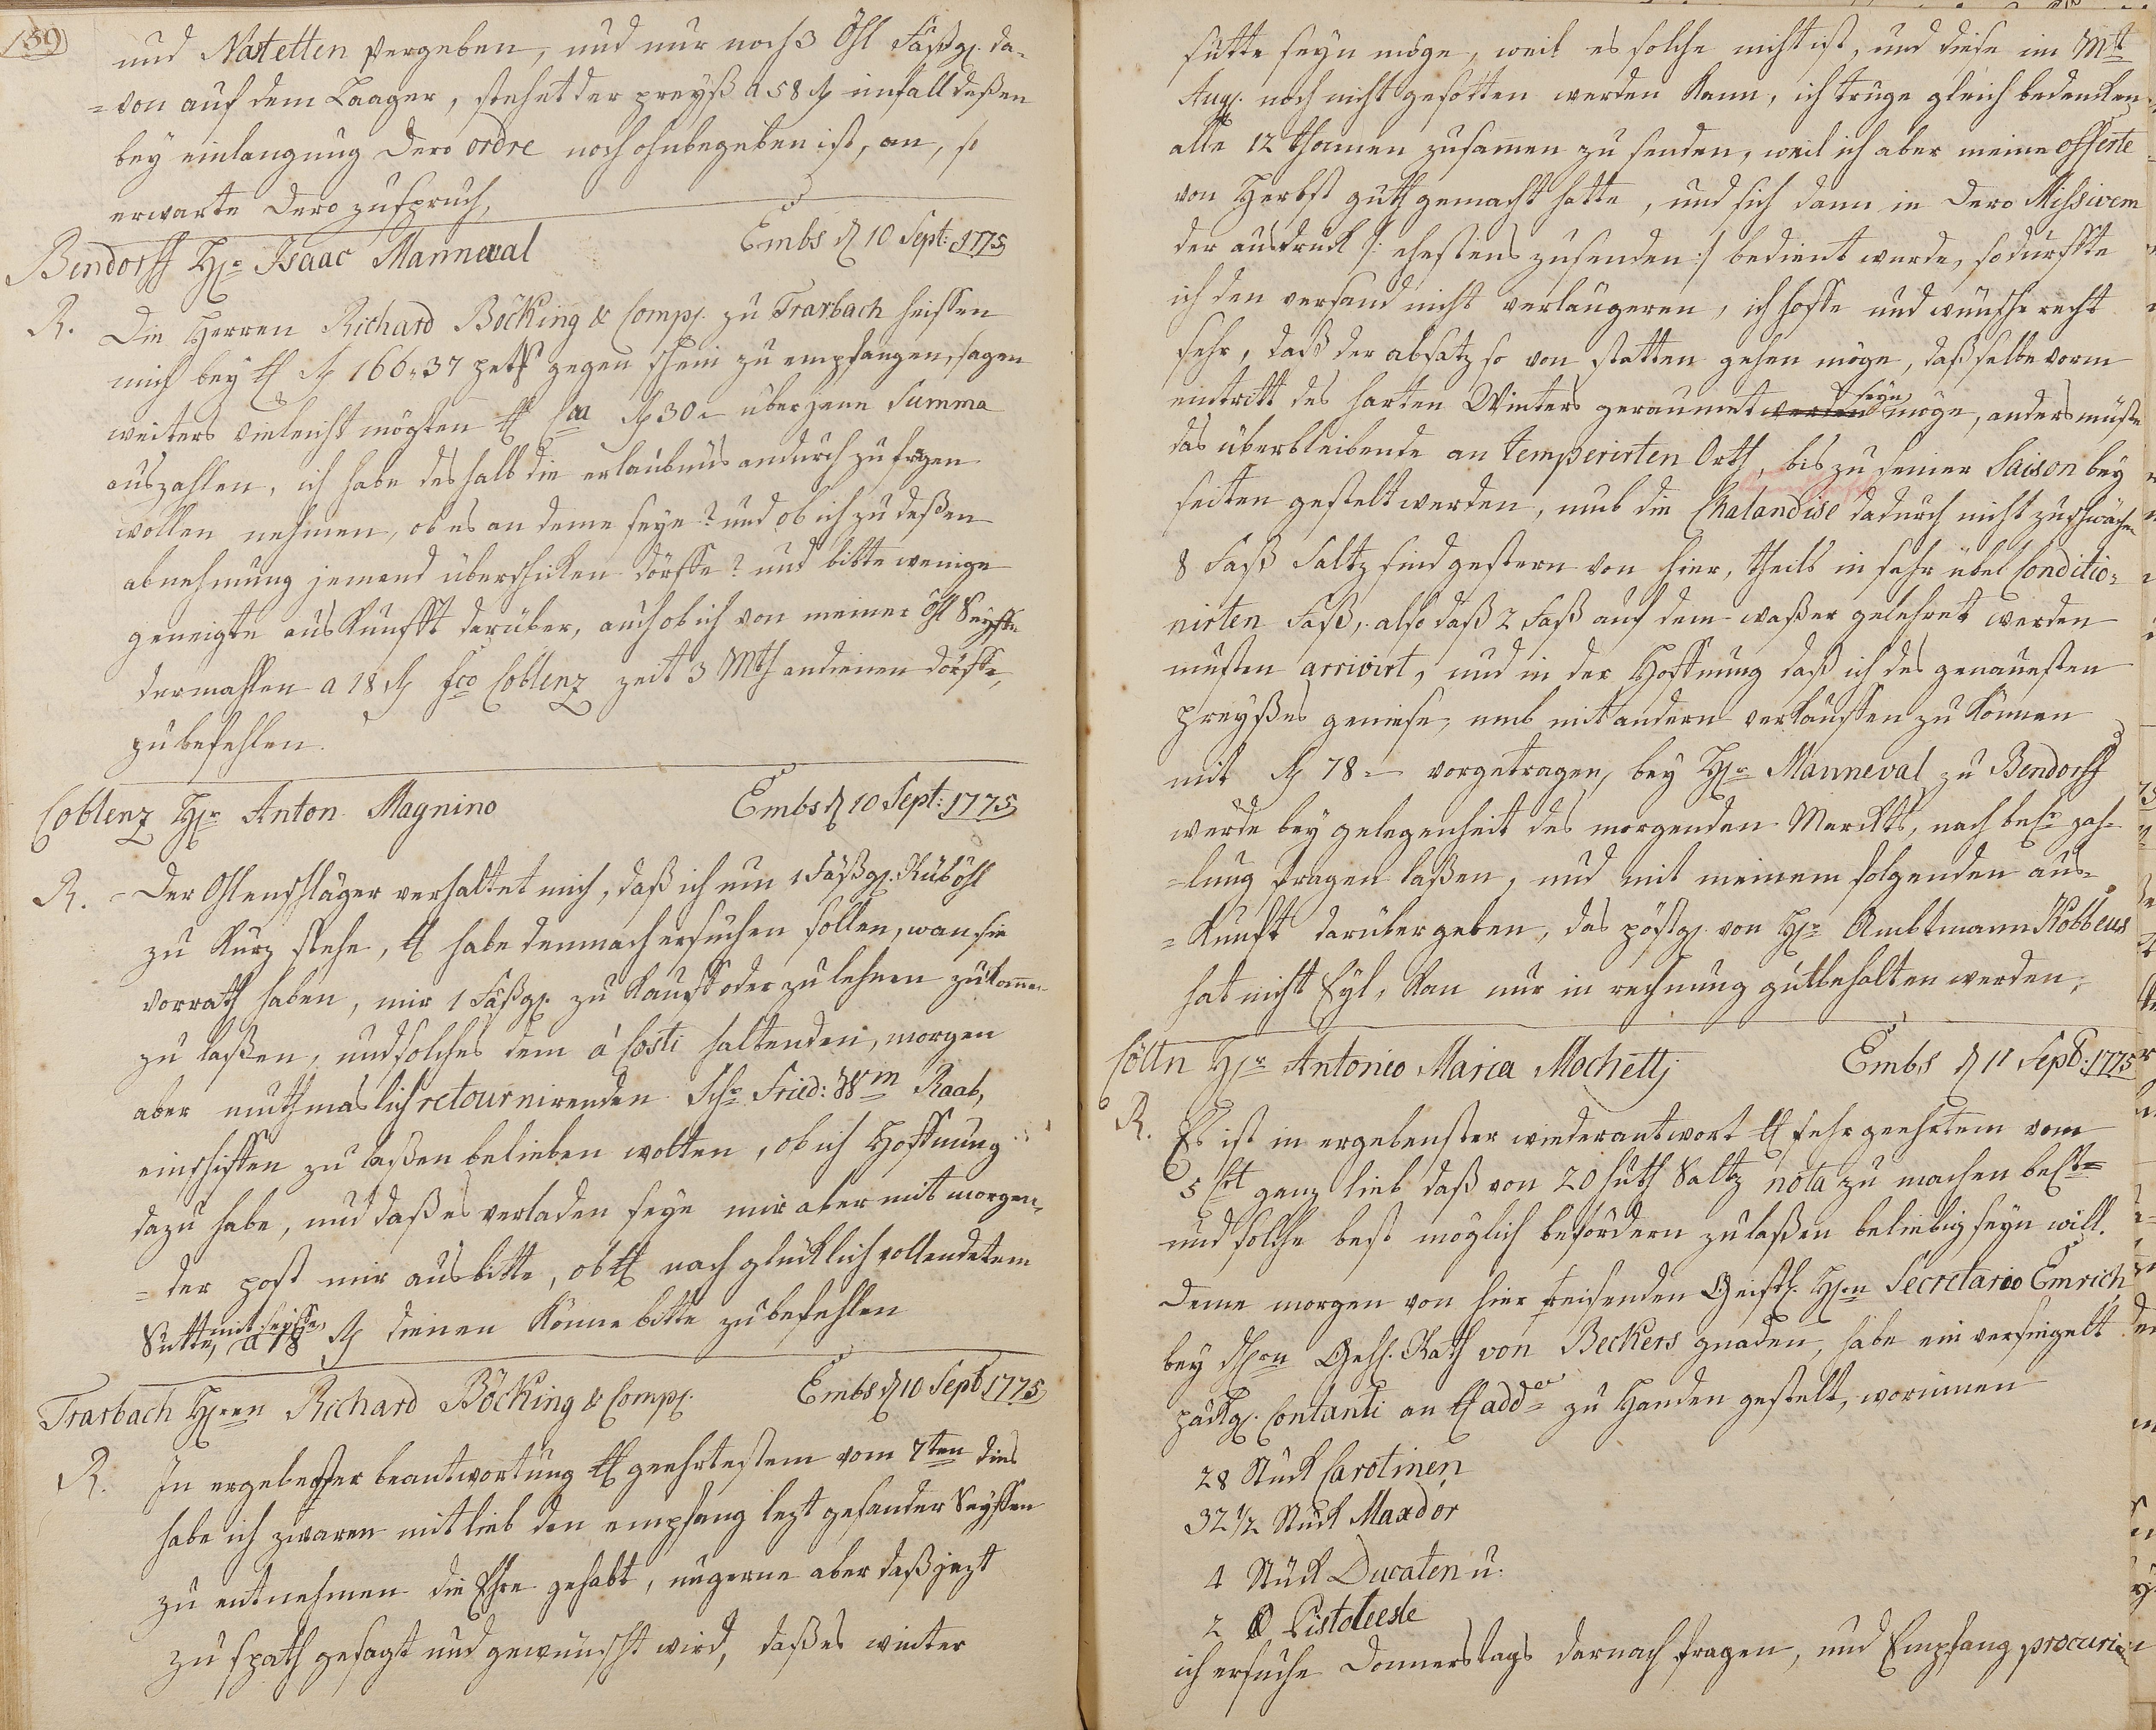 159
und Nastetten vergeben, und nur noch 3 Öhl Fäßgn. da-
=von auf dem Laager, stehet der preyß a 58 Rh imfall deßen
bey einlangung dero ordre noch ohnbegeben ist, an, so
erwarte dero zuspruch,
Bendorff Hr. Isaac Manneval Embs d 10 Sept: 1775
R. Die Herren Richard Böcking & Comp. zu Trarbach heissen
mich bey Rh 166"37 gegen schein zu empfangen, sagen
weiters vieleicht mögten Rh 30 – über jene Summa
auszahlen, ich habe deshalb die erlaubnüs andurch zu fragen
wollen nehmen, ob es an deme seye? und ob ich zu deßen
abnehmung jemand überschicken dörffe? und bitte wenige
geneigte auskunfft darüber, auch ob ich von meiner Öhl Seyffe
dermahlen a 18 Rh fco Coblenz zeit 3 Mth andienen dörffe,
zu befehlen.
Coblenz Hr. Anton Magnino Embs d 10 Sept: 1775
R. Der Ohlenschläger verhaltet mich, daß ich um 1 Fäßgn. Rüböhl
zu kurz stehe, habe demnach ersuchen sollen, wan sie
vorrath haben, mir 1 Fäßgn. zu kauff oder zu lehnen zukommen
zu laßen, und solches dem à Costi haltenden, morgen
aber muthmaslich retournirenden Schr. Fried: Wm Raab,
einschiffen zu laßen belieben wolten, ob ich Hoffnung
dazu habe, und daß es verladen seye mir aber mit morgen-
=der post mir ausbitte, ob nach glücklich vollendetem
Sutte, mit seiffe, a 18 Rh dienen könne bitte zu befehlen
Trarbach Hrren Richard Böcking & Comp. Embs d 10 Sept 1775
R. In ergebenster beantwortung geehrtestem vom 7ten dies
habe ich zwaren mit lieb den empfang lezt gesander Seyffen
zu entnehmen die Ehre gehabt, ungerne aber daß jezt
zu spath gesagt und gewünscht wird, daß es winter
sutte seyn möge, weil es solche nicht ist, und diese im Mt
Aug. noch nicht gesotten werden kann, ich truge gleich bedencken
alle 12 thonnen zusamen zu senden, weil ich aber meine offerte
von Herbst guth gemacht hatte, und sich dann in dero Missivem
der ausdruck /: ehestens zusenden :/ bedient wurde, so durffte
ich den versand nicht verlängeren, ich hoffe und wünsche recht
sehr, daß der absatz so von statten gehen möge, daß selbe vorm
eintritt des harten Winters geraumet werden seyn möge, anders müste
das überbleibende an temperirten Orth, bis zu seiner Saison bey
seiten gestelt werden, umb die Chalandise dadurch nicht zuschwächen
8 Faß Saltz sind gestern von hier, theils in sehr übel Conditio-
nirten Faß, also daß 2 Faß auf dem waßer gelehret werden
musten arrivirt, und in der Hoffnung daß ich des genauesten
preyßes geniese, umb mit andern verkauffen zu können
mit Rh 78 – vorgetragen, bey Hr. Manneval zu Bendorff
werde bey gelegenheit des morgenden Markts, nach zah-
=lung fragen laßen, und mit meinem folgenden aus-
=kunft darüber geben, das pöstgn. von Hr. Ambtmann Röbbeus
hat nicht Eyl, kan nur in rechnung gutbehalten werden,
Cölln Hr. Antonio Maria Mochettj Embs d 11 Sept: 1775
R. Es ist in ergebenster wiederantwort sehr geehrtem vom
5 crt ganz lieb daß von 20 huth Saltz nota zu machen
und solche best möglich befördern zu laßen beliebig seyn will.
Deme morgen von hier reisenden Geistl. Hrn Secretario Emrich
bey Hrn Geh. Rath von Beckers gnaden, habe ein versiegelt
päckgn. Contanti an add. zu Handen gestelt, worinnen
28 Stück Carolinen
32 1/2 Stück Maxdor
4 Stück Ducaten u.
2 Pistolecte
ich ersuche Donnerstags darnach fragen, und Empfang procuriren